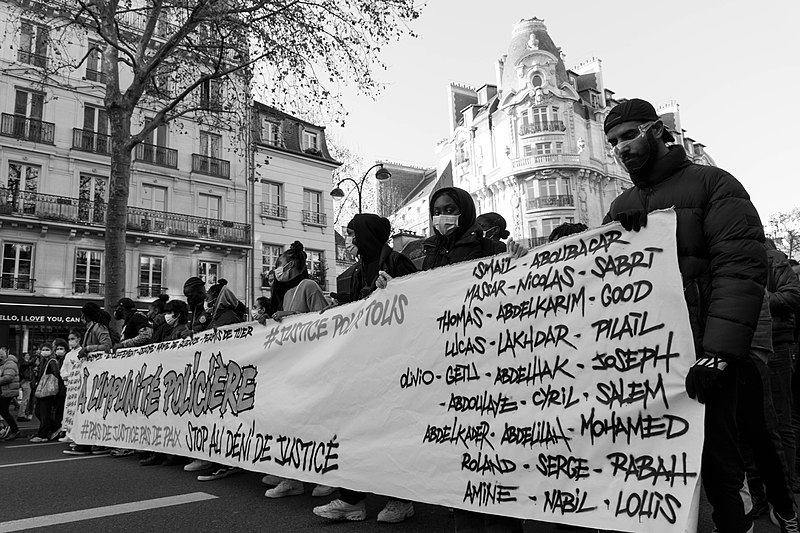 HELLO, I LOVE YOU, CAN
#JUSTICE POUR TOUS
L'IMPUNITÉ POLICIÈRE
#PAS DE JUSTICE PAS DE PAIX
STOP AU DÉNI DE JUSTICE
ISMAIL - ABOUBACAR
MASSAR - NICOLAS - SABRI
THOMAS - ABDELKARIM - GOOD
LUCAS - LAKHDAR - PILAÏL
OLIVIO - GETU - ABDELHAK - JOSEPH
- ABDOULAYE - CYRIL - SALEM
ABDELKADER - ABDELILAH - MOHAMED
ROLAND - SERGE - RABAH
AMINE - NABIL - LOUIS